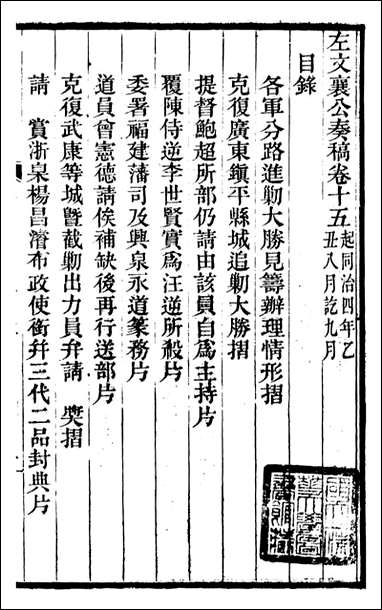 左文襄公奏稿卷十五起同治四年乙丑八月訖九月
目錄
各軍分路進勦大勝見籌辦理情形摺
克復廣東鎭平縣城追勦大勝摺
提督鮑超所部仍請由該員自爲主持片
覆陳侍逆李世賢實爲汪逆所殺片
委署福建藩司及興泉永道篆務片
道員曾憲德請俟補缺後再行送部片
克復武康等城曁截勦出力員弁請 奬摺
請 賞浙臬楊昌濬布政使銜幷三代二品封典片